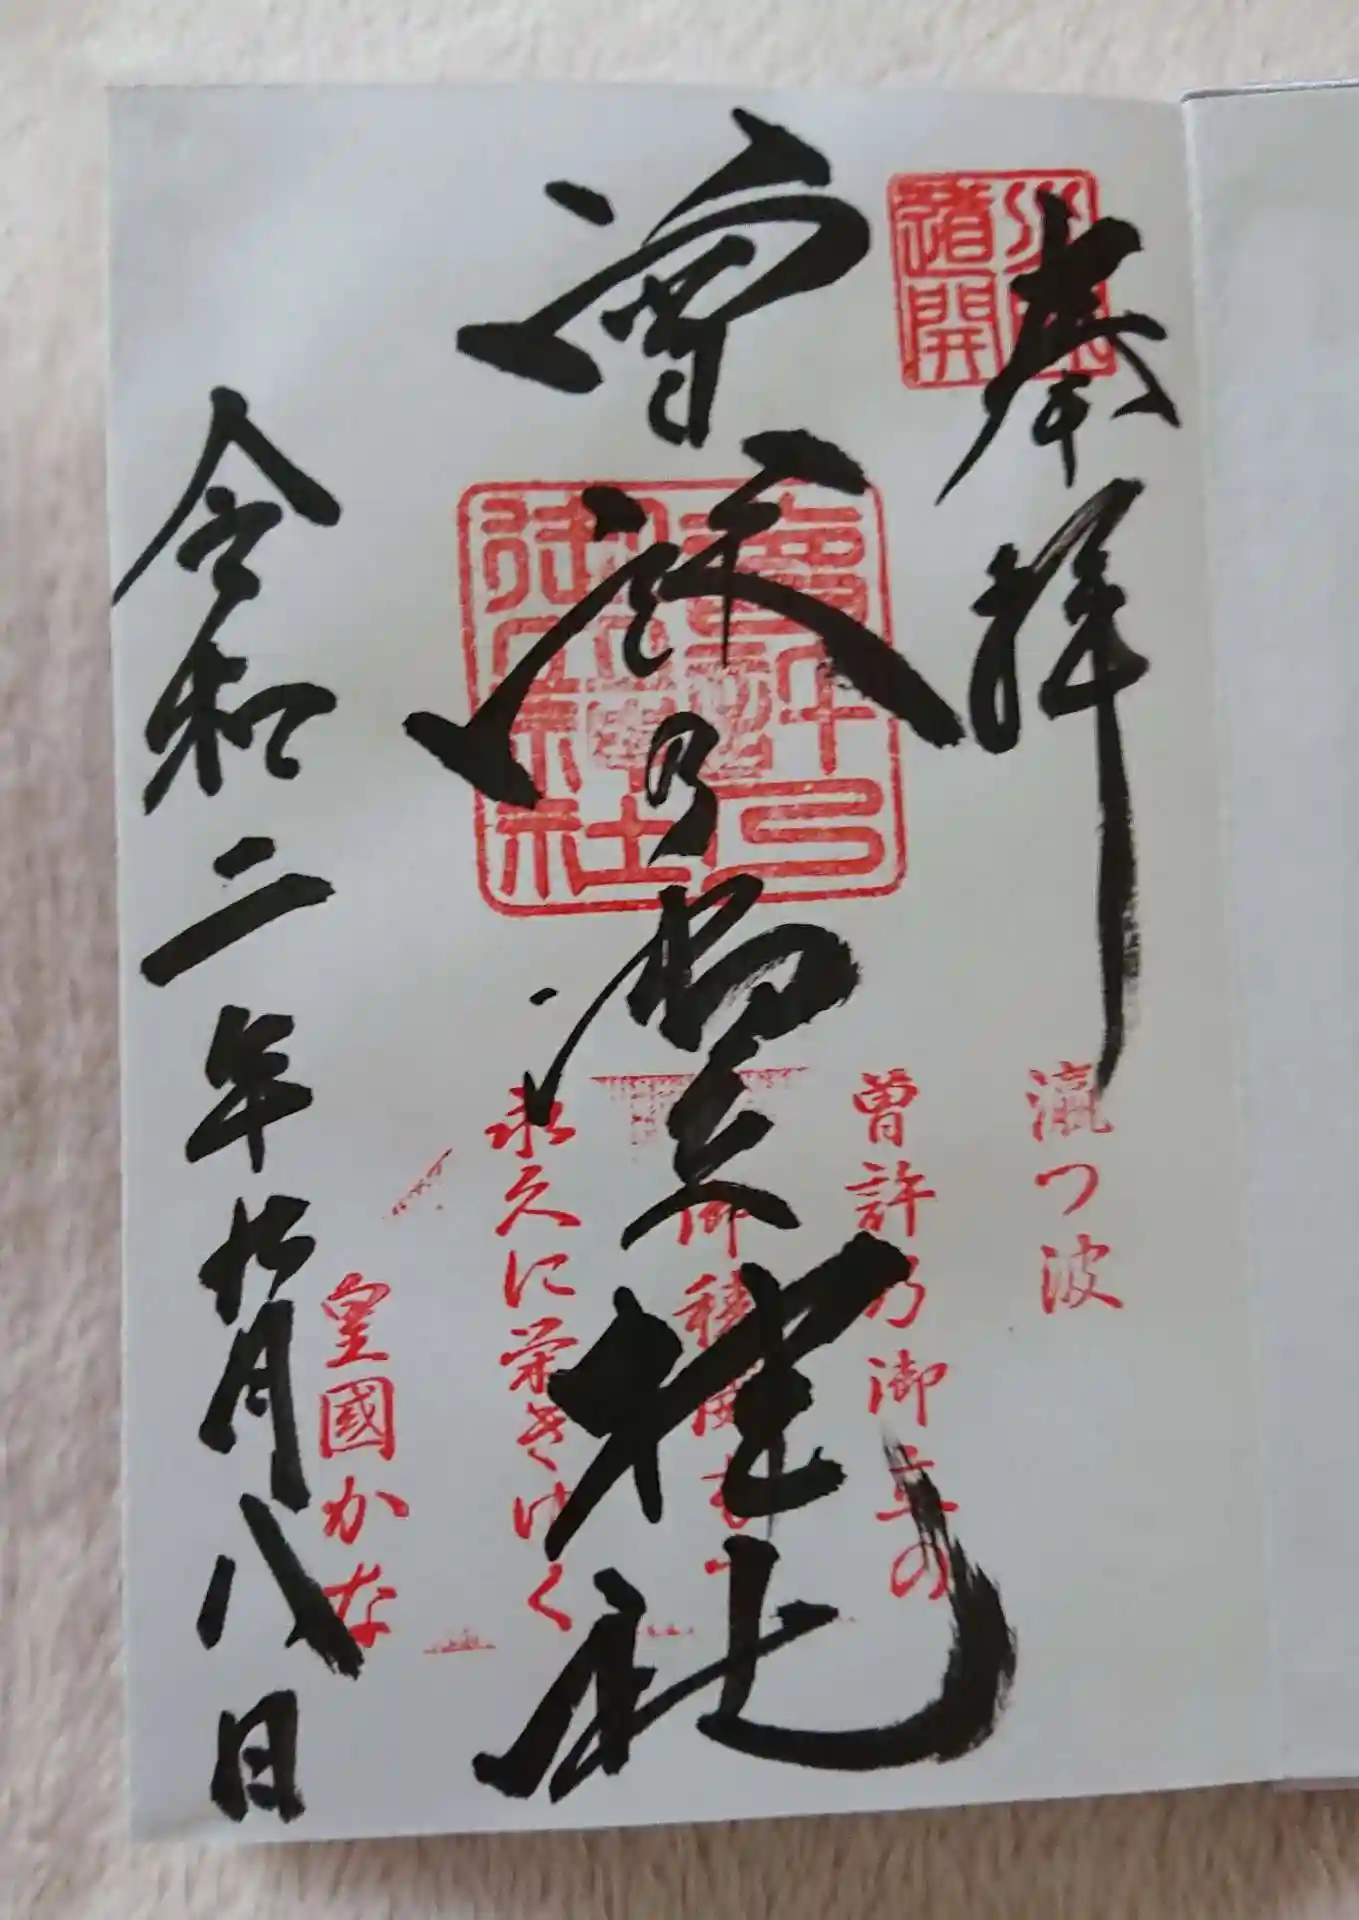 奉拝
曽許乃御立神社
令和二年
月八日
曾許乃
御立神社
道開
瀛つ波
曽許乃御立の
御稜威もて
永久に栄きゆく
皇國かな